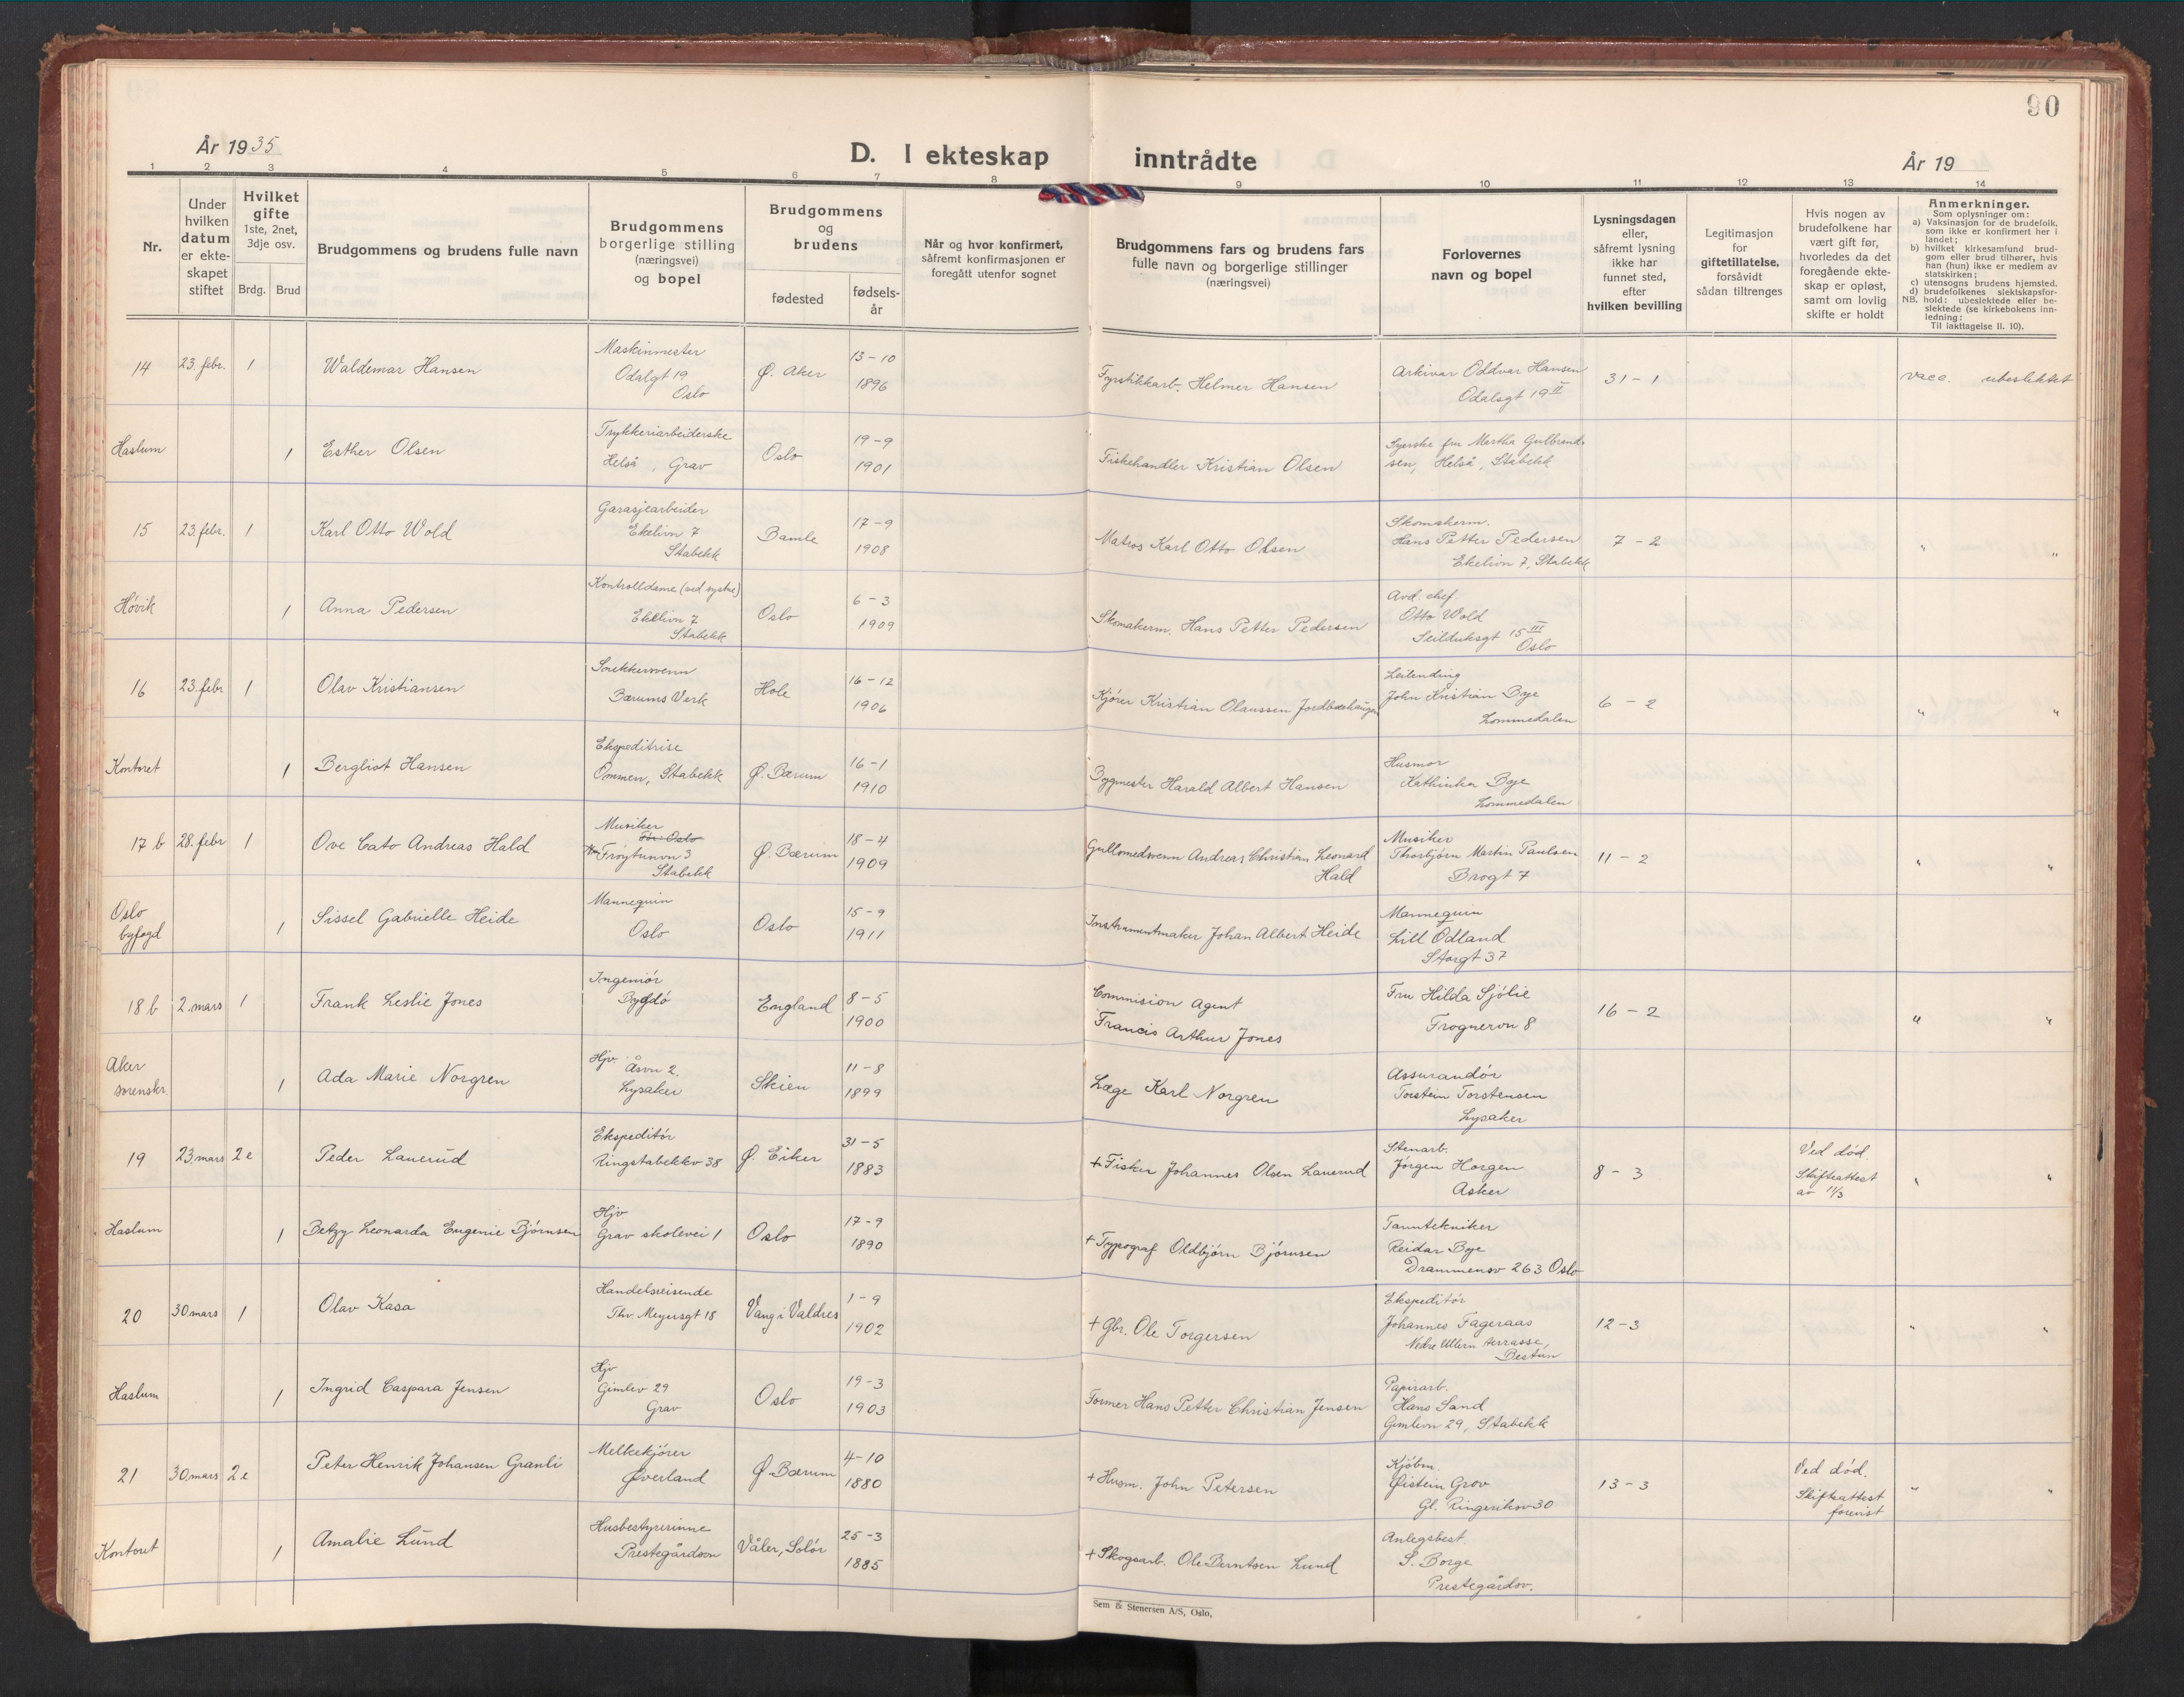 90
År 1935
D. I ekteskap inntrådte
År 19
1 2 3 4 5 6 7 8 9 10 11 12 13 14
Nr.
Under hvilken datum er ekteskapet stiftet
Hvilket gifte 1ste, 2net, 3dje osv.
Brdg. Brud
Brudgommens og brudens fulle navn
Brudgommens borgerlige stilling (næringsvei) og bopel
Brudgommens og brudens
fødested
fødselsår
Når og hvor konfirmert, såfremt konfirmasjonen er foregått utenfor sognet
Brudgommens fars og brudens fars fulle navn og borgerlige stillinger (næringsvei)
Forlovernes navn og bopel
Lysningsdagen eller, såfremt lysning ikke har funnet sted, efter hvilken bevilling
Legitimasjon for giftetillatelse, forsåvidt sådan tiltrenges
Hvis nogen av brudefolkene har vært gift før, hvorledes da det foregående ekteskap er opløst, samt om lovlig skifte er holdt
Anmerkninger.
Som oplysninger om:
a) Vaksinasjon for de brudefolk. som ikke er konfirmert her i landet;
b) hvilket kirkesamfund brudgom eller brud tilhører, hvis han (hun) ikke er medlem av statskirken;
c) utensogns brudens hjemsted.
d) brudefolkenes slektskapsforhold: ubeslektede eller beslektede (se kirkebokens innledning:
NB.
Til iakttagelse II. 10).
14 23. febr. 1 Waldemar Hansen Maskinmester Odalgt 19 Oslo Ø. Aker 13-10 1896 Fyrstikkarb. Helmer Hansen Arkivar Oddvar Hansen Odalsgt 19 II 31-1 vacc. ubeslektet
Haslum 1 Esther Olsen Trykkeriarbeiderske Helså, Grav Oslo 19-9 1901 Fiskehandler Kristian Olsen Syerske fru Martha Gulbrandsen, Helså, Stabekk
15 23. febr. 1 Karl Otto Wold Garasjearbeider Ekelivn 7 Stabekk Bamle 17-9 1908 Matros Karl Otto Olsen Skomakerm. Hans Petter Pedersen Ekelivn 7, Stabekk 7-2 " "
Høvik 1 Anna Pedersen Kontrolldame (ved systue) Ekelivn 7 Stabekk Oslo 6-3 1909 Skomakerm. Hans Petter Pedersen Avd. chef Otto Wold Seilduksgt 15 III Oslo
16 23. febr 1 Olav Kristiansen Snekkersvenn Bærums Verk Hole 16-12 1906 Kjører Kristian Olaussen Jordbækhaugen Leilending John Kristian Bye Lommedalen 6-2 " "
Kontoret 1 Bergliot Hansen Ekspeditrise Ommen, Stabekk Ø. Bærum 16-1 1910 Bygmester Harald Albert Hansen Husmor Kathinka Bye Lommedalen
17 b 28. febr 1 Ove Cato Andreas Hald Musiker Frøytunvn 3 Stabekk Ø. Bærum 18-4 1909 Gullsmedsvenn Andreas Christian Leonard Hald Musiker Thorbjørn Martin Paulsen Brogt 7 11-2 " "
Oslo byfogd 1 Sissel Gabrielle Heide Mannequin Oslo Oslo 15-9 1911 Instrumentmaker Johan Albert Heide Mannequin Lill Ødland Storgt 37
18 b 2. mars 1 Frank Leslie Jones Ingeniør Bygdø England 8-5 1900 Commision Agent Francis Arthur Jones Fru Hilda Sjølie Frognervn 8 16-2 " "
Aker sorenskr. 1 Ada Marie Norgren Hjv Åsvn 2. Lysaker Skien 11-8 1899 Læge Karl Norgren Assurandør Torstein Torstensen Lysaker
19 23. mars 2e Peder Lauerud Ekspeditør Ringstabekkv 38 Ø. Eiker 31-5 1883 + Fisker Johannes Olsen Lauerud Stenarb. Jørgen Horgen Asker 8-3 Ved død. Skifteattest av 11/3 " "
Haslum 1 Betzy Leonarda Eugenie Bjørnsen Hjv Grav skolevei 1 Oslo 17-9 1890 + Typograf Oldbjørn Bjørnsen Tanntekniker Reidar Bye Drammensv 263 Oslo
20 30 mars 1 Olav Kasa Handelsreisende Thv. Meyersgt 18 Vang i Valdres 1-9 1902 + Gbr. Ole Torgersen Ekspeditør Johannes Fageraas Nedre Ullern terrasse, Bestun 12-3 " "
Haslum 1 Ingrid Caspara Jensen Hjv Gimlev 29 Grav Oslo 19-3 1903 Former Hans Petter Christian Jensen Papirarb. Hans Sand Gimlevn 29, Stabekk
21 30 mars 2e Peter Henrik Johansen Granli Melkekjører Øverland Ø. Bærum 4-10 1880 + Husm. John Petersen Kjøbm. Øistein Grov Gl. Ringeriksv 30 13-3 Ved død. Skifteattest forevist " "
Kontoret 1 Amalie Lund Husbestyrerinne Prestegårdsvn Våler, Solør 25-3 1885 + Skogsarb. Ole Berntsen Lund Anlegsbest. S. Borge Prestegårdsv.
Sem & Stenersen A/S, Oslo.